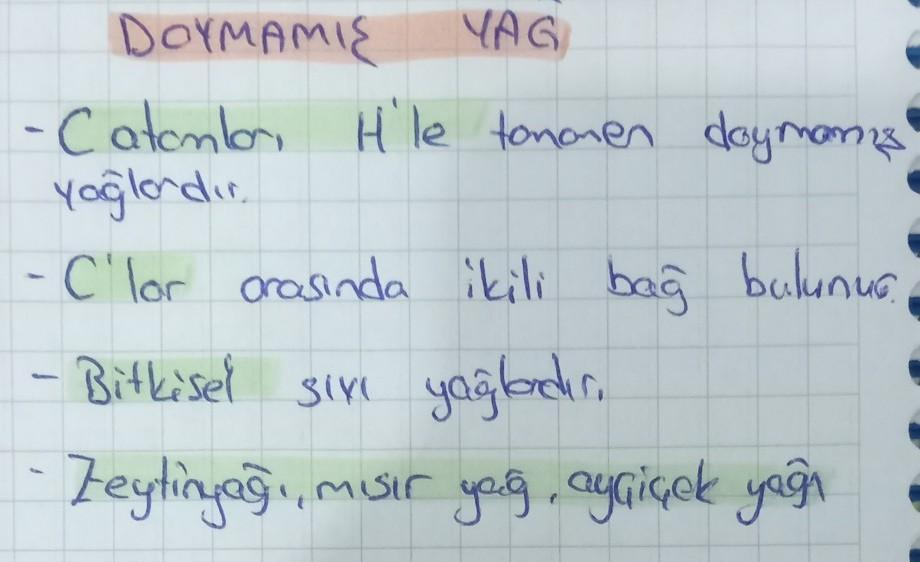 DOYMAMIŞ YAĞ
- C atomları H'le tamamen doymamış
yağlardır.
- C'lar arasında ikili bağ bulunur.
- Bitkisel sıvı yağlardır.
- Zeytinyağı, mısır yağ, ayçiçek yağı